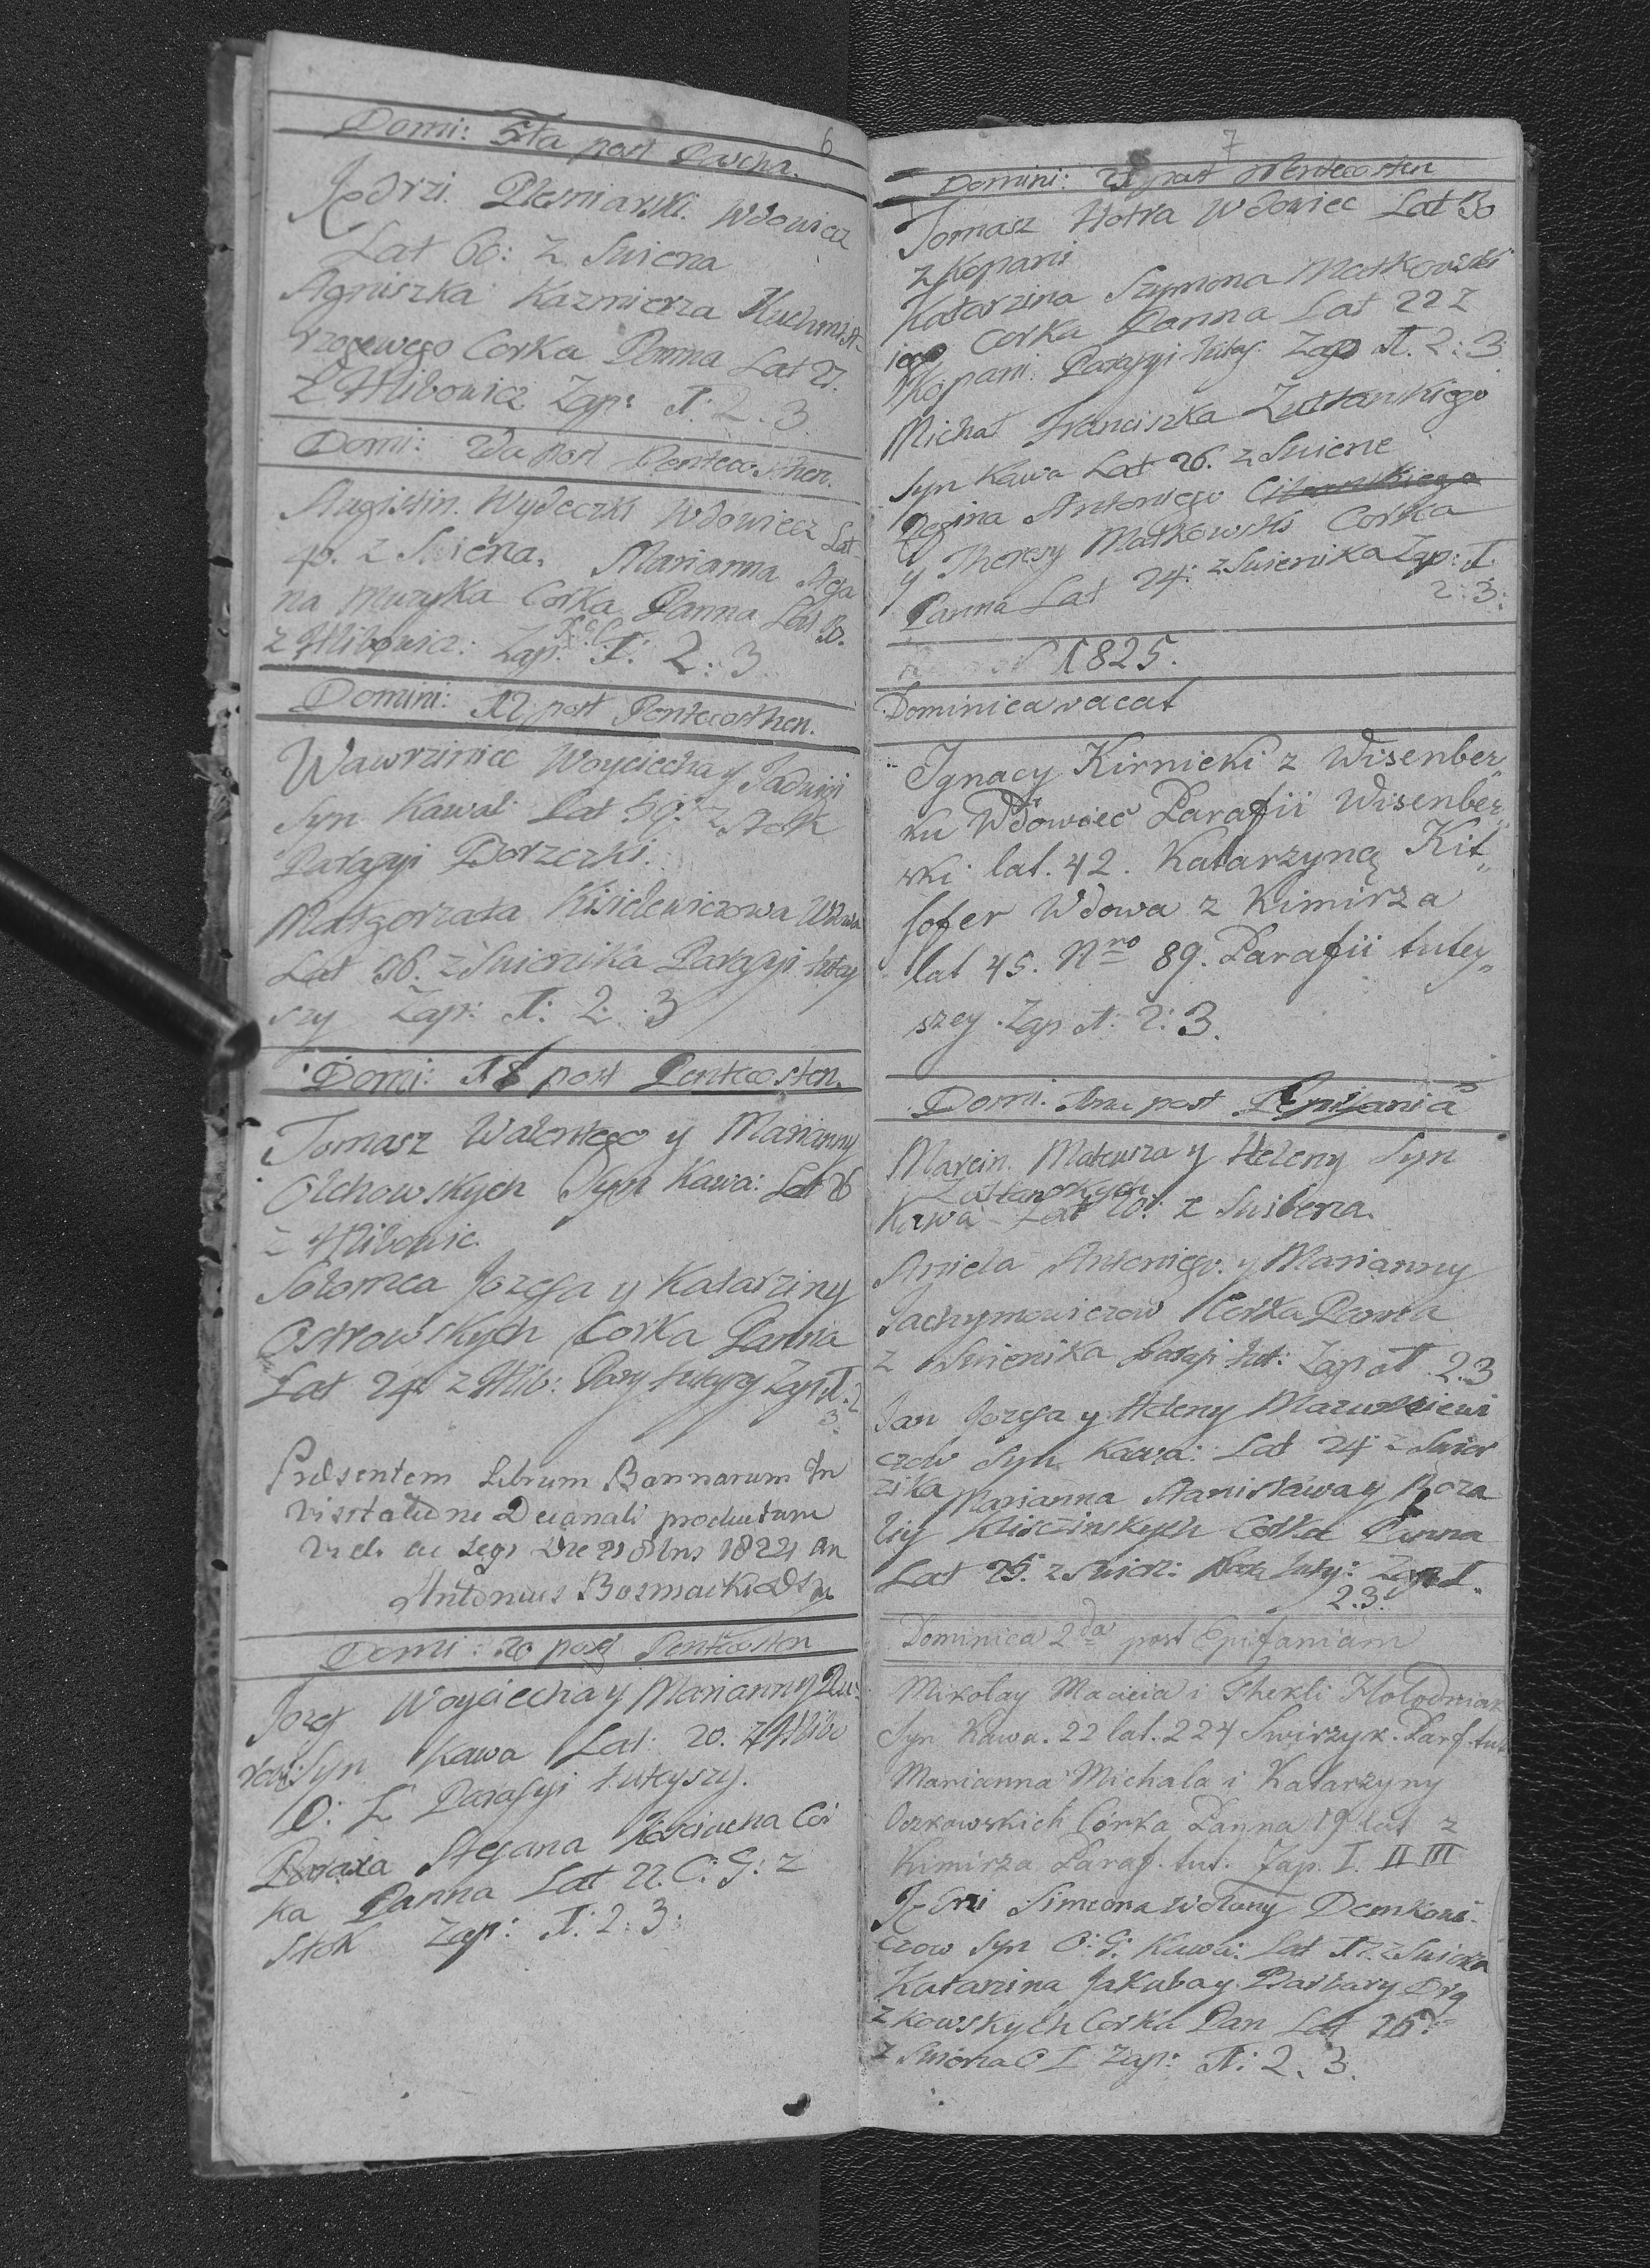 6
Domi: 5ta post Pascha.
Jędrzi. Plesniarski. Wdowiec
Lat 60: z Swierza
Agniszka Kazmierza Kuchmist
rzogewego Corka Panna Lat 27.
z Hlibowicz Zap: 1: 2. 3.
Domi: 2da post Pentecosthen.
Augistin. Wydeczki Wdowiecz Lat
40. z Swierza. Marianna
na Muzyka Corka Panna Lat 30.
z Hlibowicz: Zap: 1: 2: 3.
Domini: 12 post Pentecosthen.
Wawrziniec Woyciecha y Jadwigi
Syn Kawal: Lat 59: z Stok
Parafyi Borzczki.
Małgorzata Kisielewiczowa Wdowa
Lat 56. z Swierzika Parafyi tutey
szy Zap: 1: 2: 3
Domi: 18 post Pentecosten.
Tomasz Walentego y Marianny
Olchowskych Syn Kawa: Lat 26
z Hlibowic.
Salomea Jozefa y Katarziny
Ostrowskych Corka Panna
Lat 24: z Hlib: Para tuteyszy Zap: 1. 2
3
Præsentem Librum Bannarum In
Visitatione Decanali productum
vidi ac legi Die 21 8bris 1824 an
Antonius Bosmacki
Domi: 20 post Pentecosten
Jozef Woyciecha y Marianny Du
Syn Kawa Lat: 20. z Hlibo
O: L Parafyi tuteyszy.
Stefana Cór
ka Panna Lat 22. O: G: z
Stok Zap: 1: 2: 3:
7
Domini: 21 post Pentecosten
Tomasz Hotra Wdowiec Lat 30
z Kopani
Katarzina Szymona Matkowski
iego Corka Panna Lat 22 z
Kopani. Parafyi tutey: Zap 1. 2: 3
Michał Franciszka Zultanskiego
Syn Kawa Lat 26. z Swierze
Regina Antoniego
y Theresy Matkowski Corka
Panna Lat 24: z Swierzika Zap: 1.
2: 3:
1825.
Dominica vacat
Ignacy Kirnicki z Wisenber„
ku Wdowiec Parafii Wisenber„
ski lat. 42. Katarzyną Kit„
sofer Wdowa z Kimirza
lat 45. Nro 89. Parafii tutey„
szey. Zap 1: 2: 3.
Domi. 1ma post Epifania
Marcin. Mateusza y Heleny Syn
Zultanskych
Kawa Lat 20: z Swierza.
Aniela Antoniego. y Marianny
Jachymowiczow Corka Panna
z Swierzika Parafi tut: Zap 1. 2. 3
Jan Jozefa y Heleny Mazurkiewi
czow Syn Kawa: Lat 24 z Swier
zika
Marianna Stanisława y Roza
lij Kliszczinskych Corka Panna
Lat 25. z Swierz: Para tutey: Zap 1.
2. 3.
Dominica 2da post Epifaniam
Mikolay Macieia i Thekli Holodniak
Syn Kawa. 22 lat. 224 Swirzyk. Parf. tut
Marianna Michala i Katarzyny
Oszkowskich Córka Panna 19 lat z
Kimirza Paraf. tut. Zap. I. II III
Jędrzi Simeona Demkowi
czow Syn O: G: Kawa: Lat 17. z Swierza
Katarzina Jakuba y Barbary Drą
zkowskych Corka Pan Lat 26.
z Swierza O L Zap: 1: 2. 3.